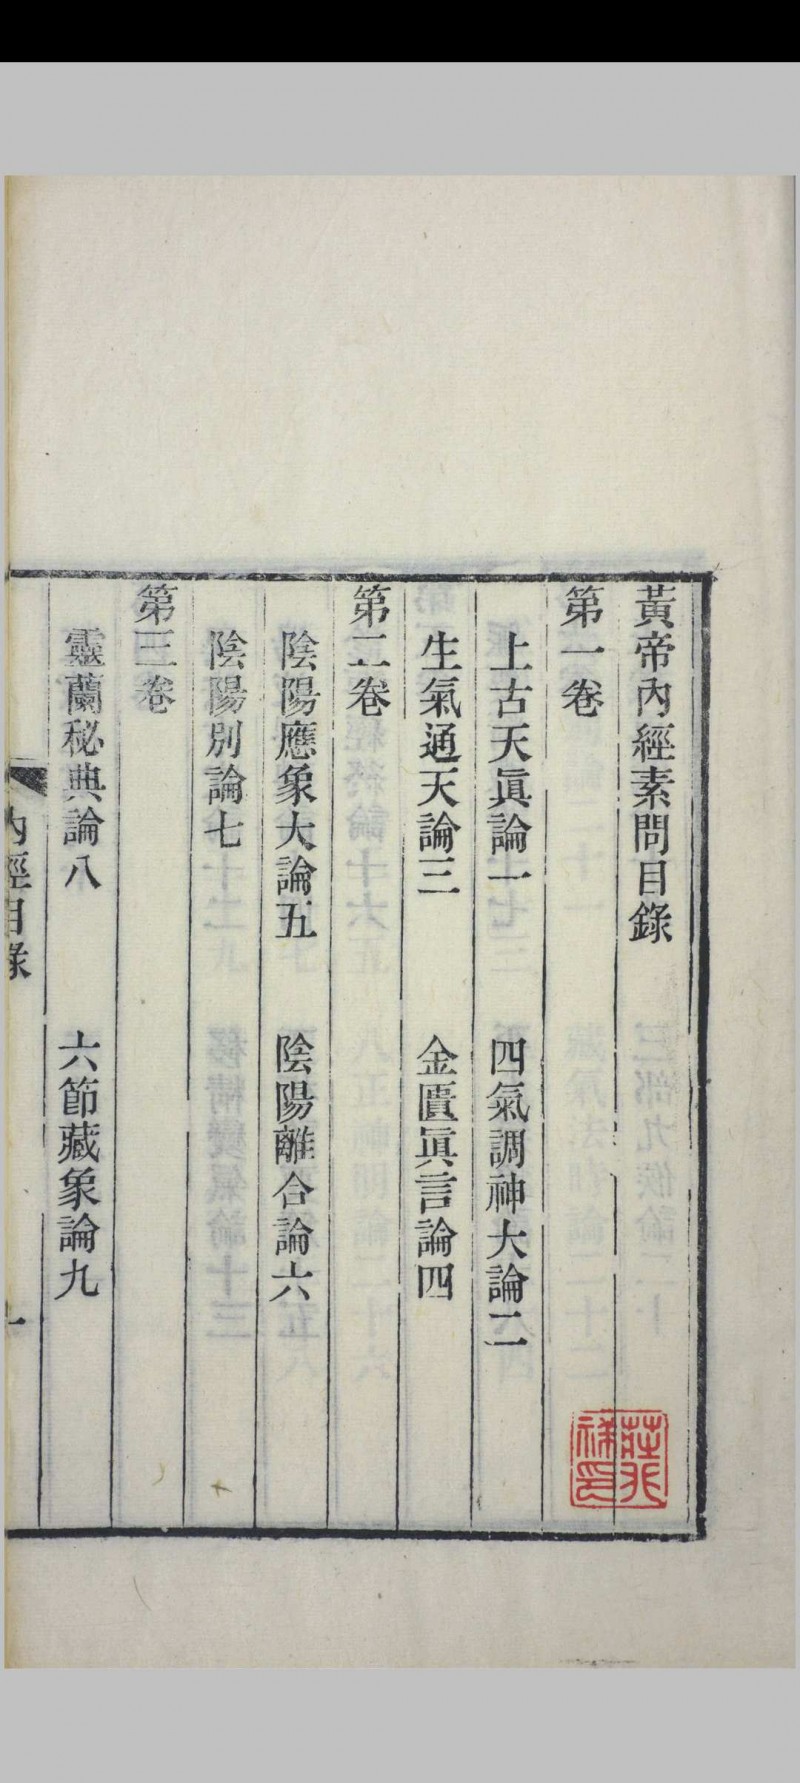 黃帝內經素問目錄
第一卷
上古天眞論一　四氣調神大論二
生氣通天論三　金匱眞言論四
第二卷
陰陽應象大論五　陰陽離合論六
陰陽別論七
第三卷
靈蘭秘典論八　六節藏象論九
內經目錄　一